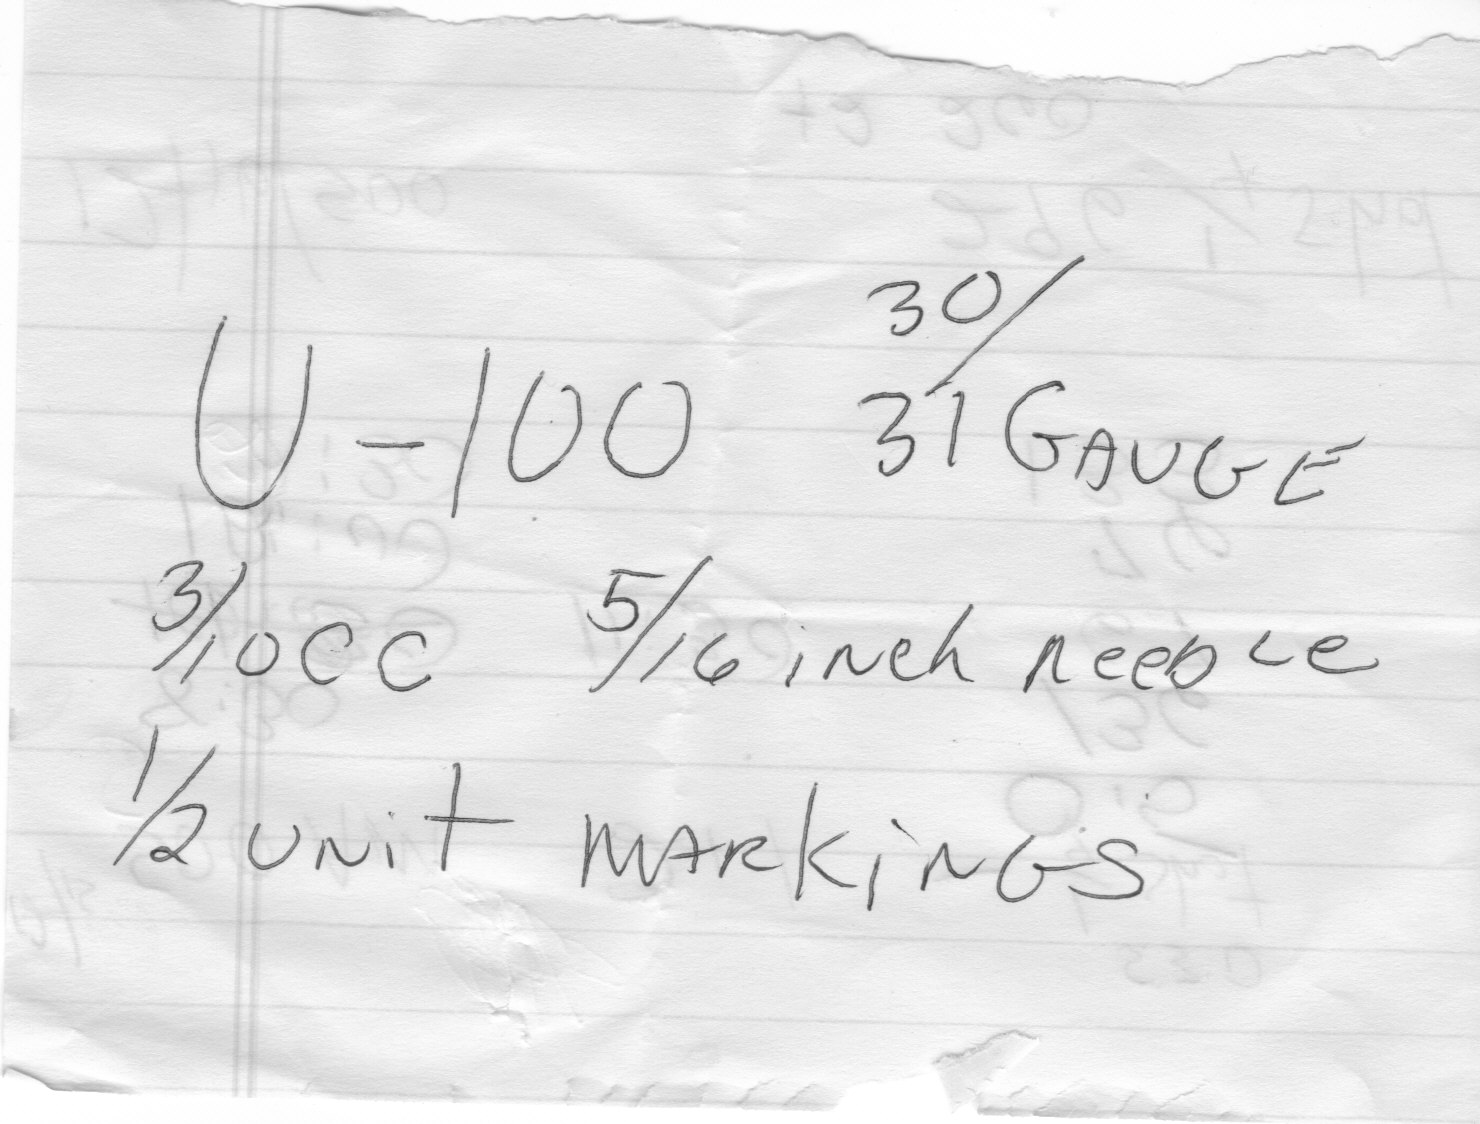 U-100 30/31 GAUGE
3/10 CC 5/16 inch needle
1/2 unit markings